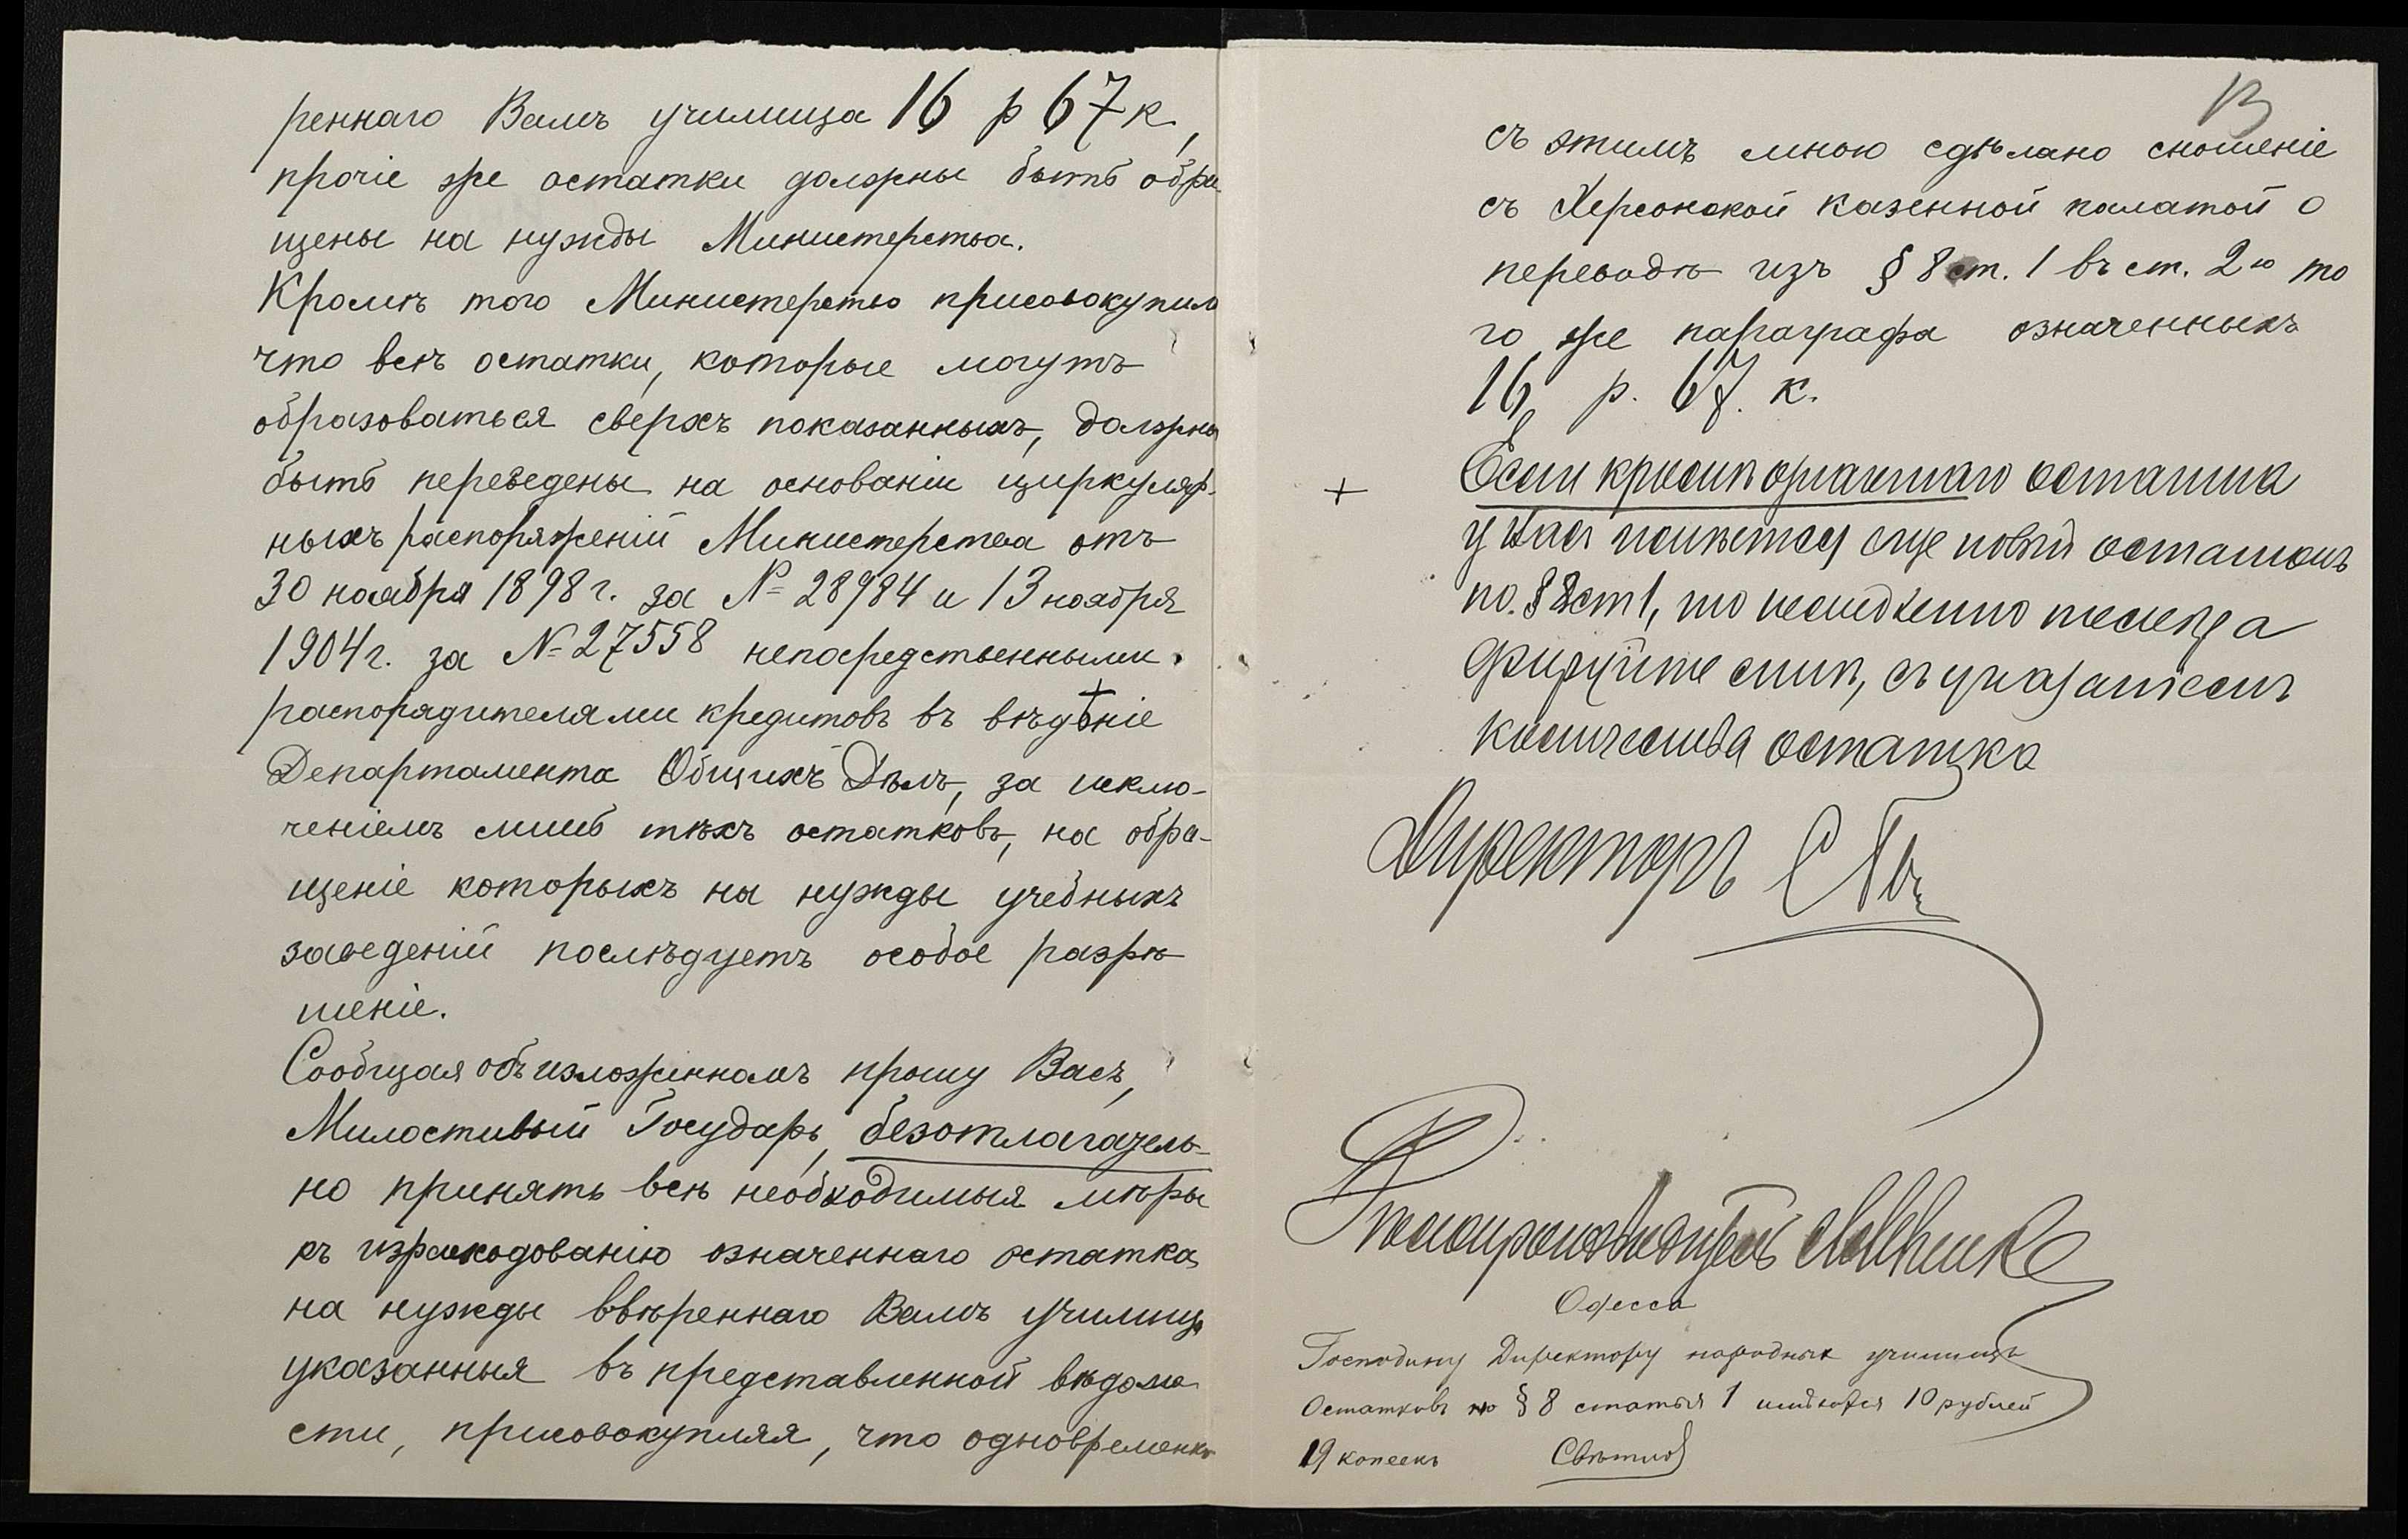 реннаго Вамъ училища 16 р 67 к,
прочіе же остатки должны быть обра
щены на нужды Министерства.
Кромѣ того Министерство присовокупило
что всѣ остатки, которые могутъ
образоваться сверхъ показанныхъ, должны
быть переведены на основаніи циркуляр-
ныхъ распоряженій Министерства отъ
30 ноября 1898 г. за № 28984 и 13 ноября
1904 г. за № 27558 непосредственными
распорядителями кредитовъ въ вѣдѣніе
Департамента Общихъ Дѣлъ, за исклю-
ченіемъ лишь тѣхъ остатковъ, на обра-
щеніе которыхъ на нужды учебныхъ
заведеній послѣдуетъ особое разрѣ
шеніе.
Сообщая объ изложенномъ прошу Васъ,
Милостивый Государь, безотлагатель-
но принять всѣ необходимыя мѣры
къ израсходованію означеннаго остатка
на нужды ввѣреннаго Вамъ училища
указанныя въ представленной вѣдомо
сти, присовокупляя, что одновременно
13
съ этимъ мною сдѣлано сношеніе
съ Херсонской казенной палатой о
переводѣ изъ § 8 ст. 1 въ ст. 2ю то
го же параграфа означенныхъ
16 р. 67. к.
+ Если кромѣ означеннаго остатка
у Васъ имѣется еще новый остатокъ
по § 8 ст 1, то немедленно телегра
фируйте мнѣ, съ указаніемъ
количества остатка
Директоръ
Дѣлопроизводитель
Одесса
Господину Директору народныхъ училищъ
Остатковъ по § 8 статья 1 имѣются 10 рублей
19 копеекъ Свѣтлов